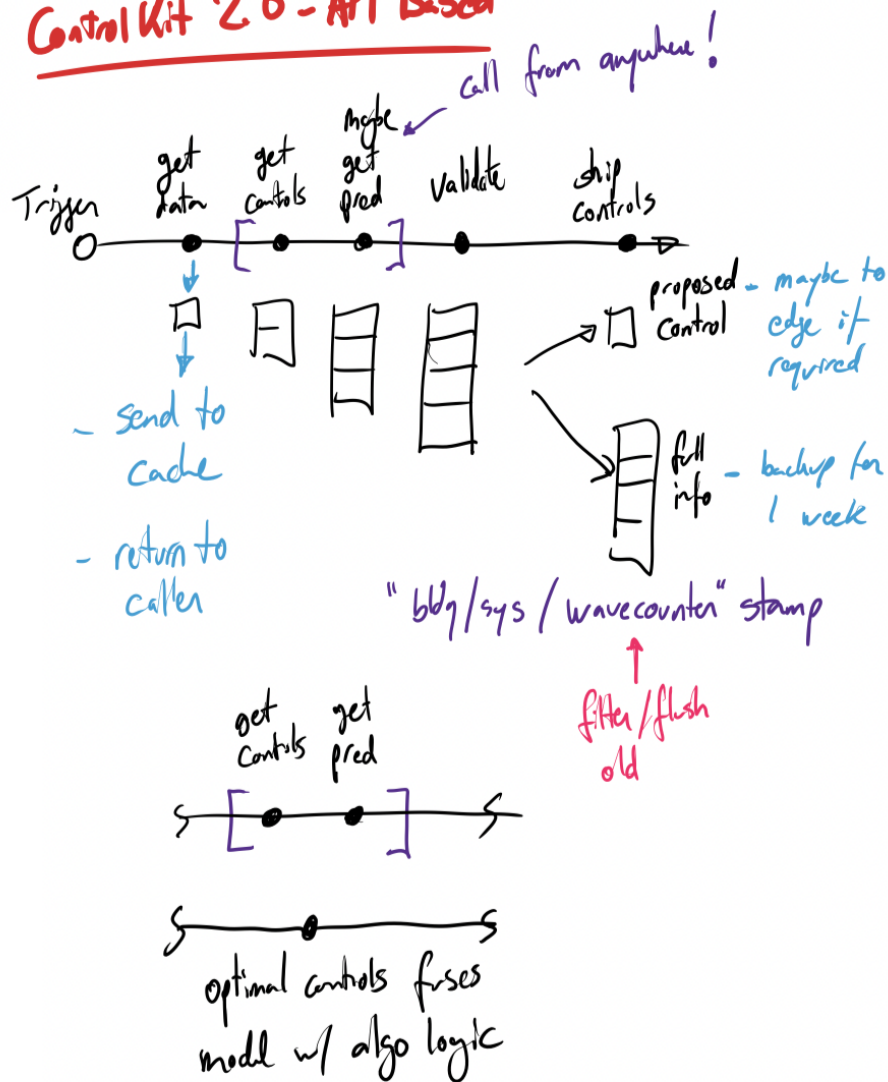 ControlKit 2.0 - API Based
call from anywhere!
Trigger
get
data
get
controls
maybe
get
pred
Validate
ship
controls
proposed
control
- maybe to
edge if
required
- send to
cache
- return to
caller
full
info
- backup for
1 week
"bldg/sys/wavecounter" stamp
filter/flush
old
get
controls
get
pred
optimal controls fuses
model w/ algo logic